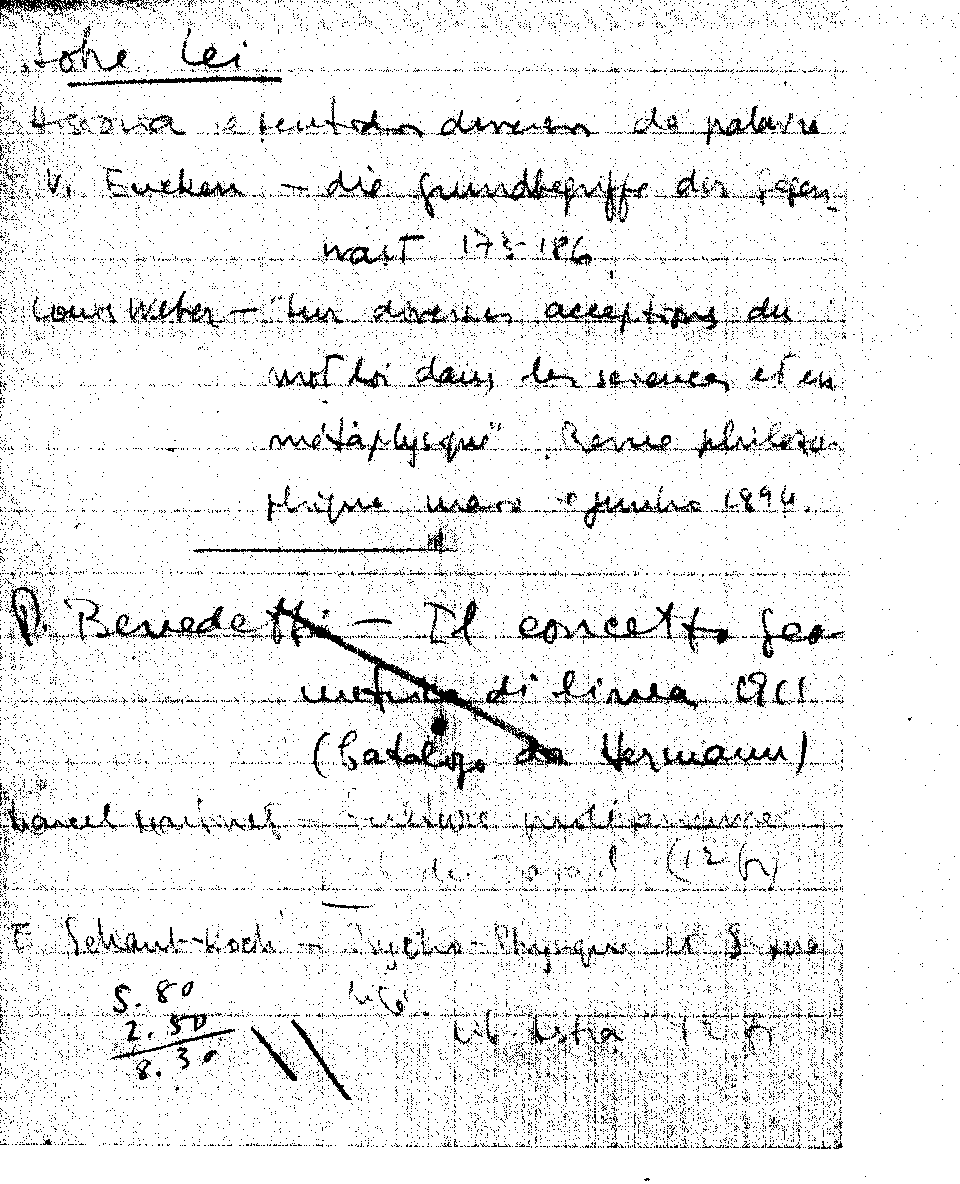 Sobre Lei
Historia e sentidos diversos da palavra
V. Eucken – die grundbegriffe der Gegen-
wart 173-186.
Louis Weber – "Sur diverses acceptions du
mot loi dans les sciences et en
métaphysique" Revue philoso-
phique março e junho 1894.
P. Benedetti – Il concetto geo-
metrico di linea 1911
(Catalogo da Hermann)
Marcel Martinet – Culture prolétarienne
(12 fr)
E. Schaub-Koch – Psycho-Physique et
Lib. Astra 12 fr
5.80
2.50
8.30